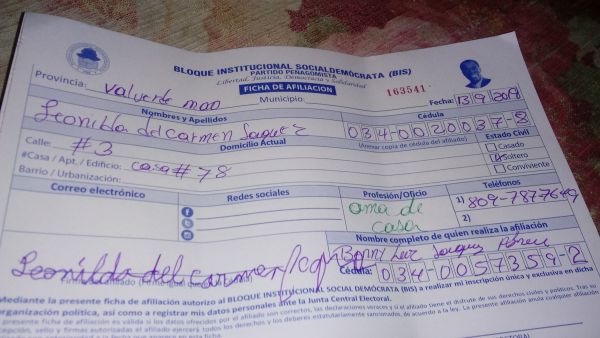 BLOQUE INSTITUCIONAL SOCIALDEMÓCRATA (BIS)
PARTIDO PENAGOMISTA
Libertad, Justicia, Democracia y Solidaridad
FICHA DE AFILIACIÓN
163541
Provincia: Valverde mao
Municipio:
Fecha: 13 9 2019
Nombres y Apellidos
Cédula
Leonilda del carmen
034-0020037-8
Domicilio Actual
(Anexar copia de cédula del afiliado)
Estado Civil
Calle: #3
Casado
Soltero
Conviviente
#Casa / Apt. / Edificio: casa # 78
Barrio / Urbanización:
Correo electrónico
Redes sociales
Profesión/Oficio
Teléfonos
ama de casa
1) 809-787-7649
2)
Nombre completo de quien realiza la afiliación
Leonilda del carmen
Cédula: 034-0057359-2
Mediante la presente ficha de afiliación autorizo al BLOQUE INSTITUCIONAL SOCIALDEMÓCRATA (BIS) a realizar mi inscripción única y exclusiva en dicha
organización política, así como a registrar mis datos personales ante la Junta Central Electoral.